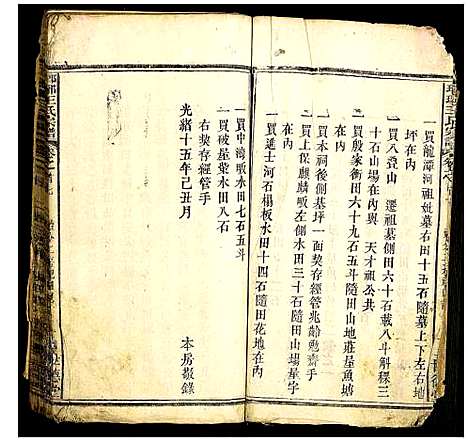 一買龍潭河祖妣墓右田十五石隨墓上下左右地
坪在內
一買八登山 遷祖墓側田六十石載八斗解稞三
十石山場在內與 天才祖公共
一買殷家衝田六十九石五斗隨田山地莊屋魚塘
在內
一買本祠後側基坪一面契存經管兆齡勉齋手
一買上保麒麟畈左側水田三十石隨田山場屋宇
在內
一買進士河石楊板水田十四石隨田花地在內
一買中灣畈水田七石五斗
一買破屋菉水田八石
右契存經管手
光緒十五年己丑月
本房敬錄